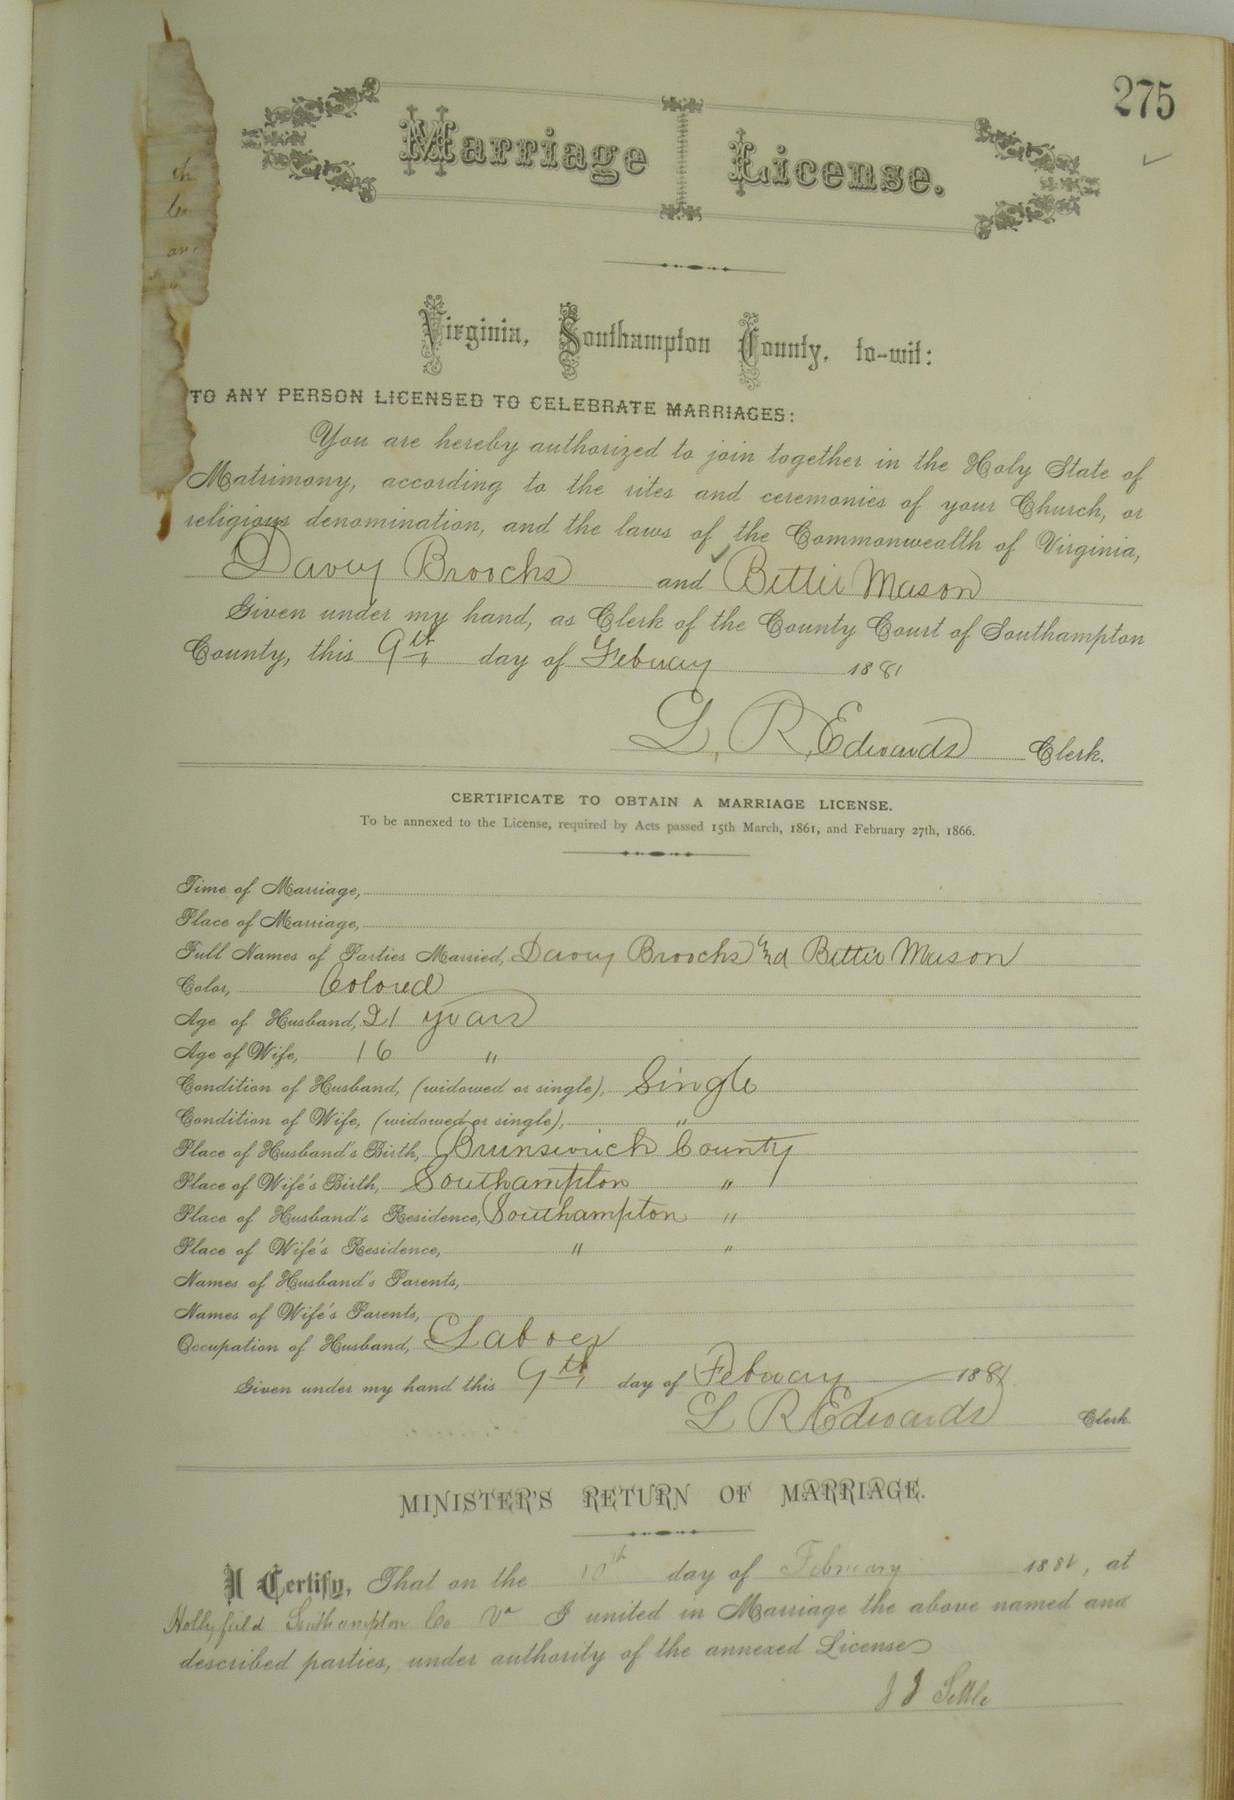 275
Marriage License.
Virginia, Southampton County, to-wit:
TO ANY PERSON LICENSED TO CELEBRATE MARRIAGES:
You are hereby authorized to join together in the Holy State of
Matrimony, according to the rites and ceremonies of your Church, or
religious denomination, and the laws of the Commonwealth of Virginia,
Davey Broocks and Bettie Mason
Given under my hand, as Clerk of the County Court of Southampton
County, this 9th day of Febuary 1881
L. R. Edwards Clerk.
CERTIFICATE TO OBTAIN A MARRIAGE LICENSE.
To be annexed to the License, required by Acts passed 15th March, 1861, and February 27th, 1866.
Time of Marriage,
Place of Marriage,
Full Names of Parties Married, Davey Broocks and Bettie Mason
Color, Colored
Age of Husband, 21 years
Age of Wife, 16 "
Condition of Husband, (widowed or single), Single
Condition of Wife, (widowed or single), "
Place of Husband's Birth, Brunswick County
Place of Wife's Birth, Southampton "
Place of Husband's Residence, Southampton "
Place of Wife's Residence, " "
Names of Husband's Parents,
Names of Wife's Parents,
Occupation of Husband, Laboer
Given under my hand this 9th day of Febuary 1881
L R Edwards Clerk
MINISTER'S RETURN OF MARRIAGE.
I Certify, That on the 10th day of February 1881, at
Hollyfield Southampton Co Va I united in Marriage the above named and
described parties, under authority of the annexed License
J J Settle